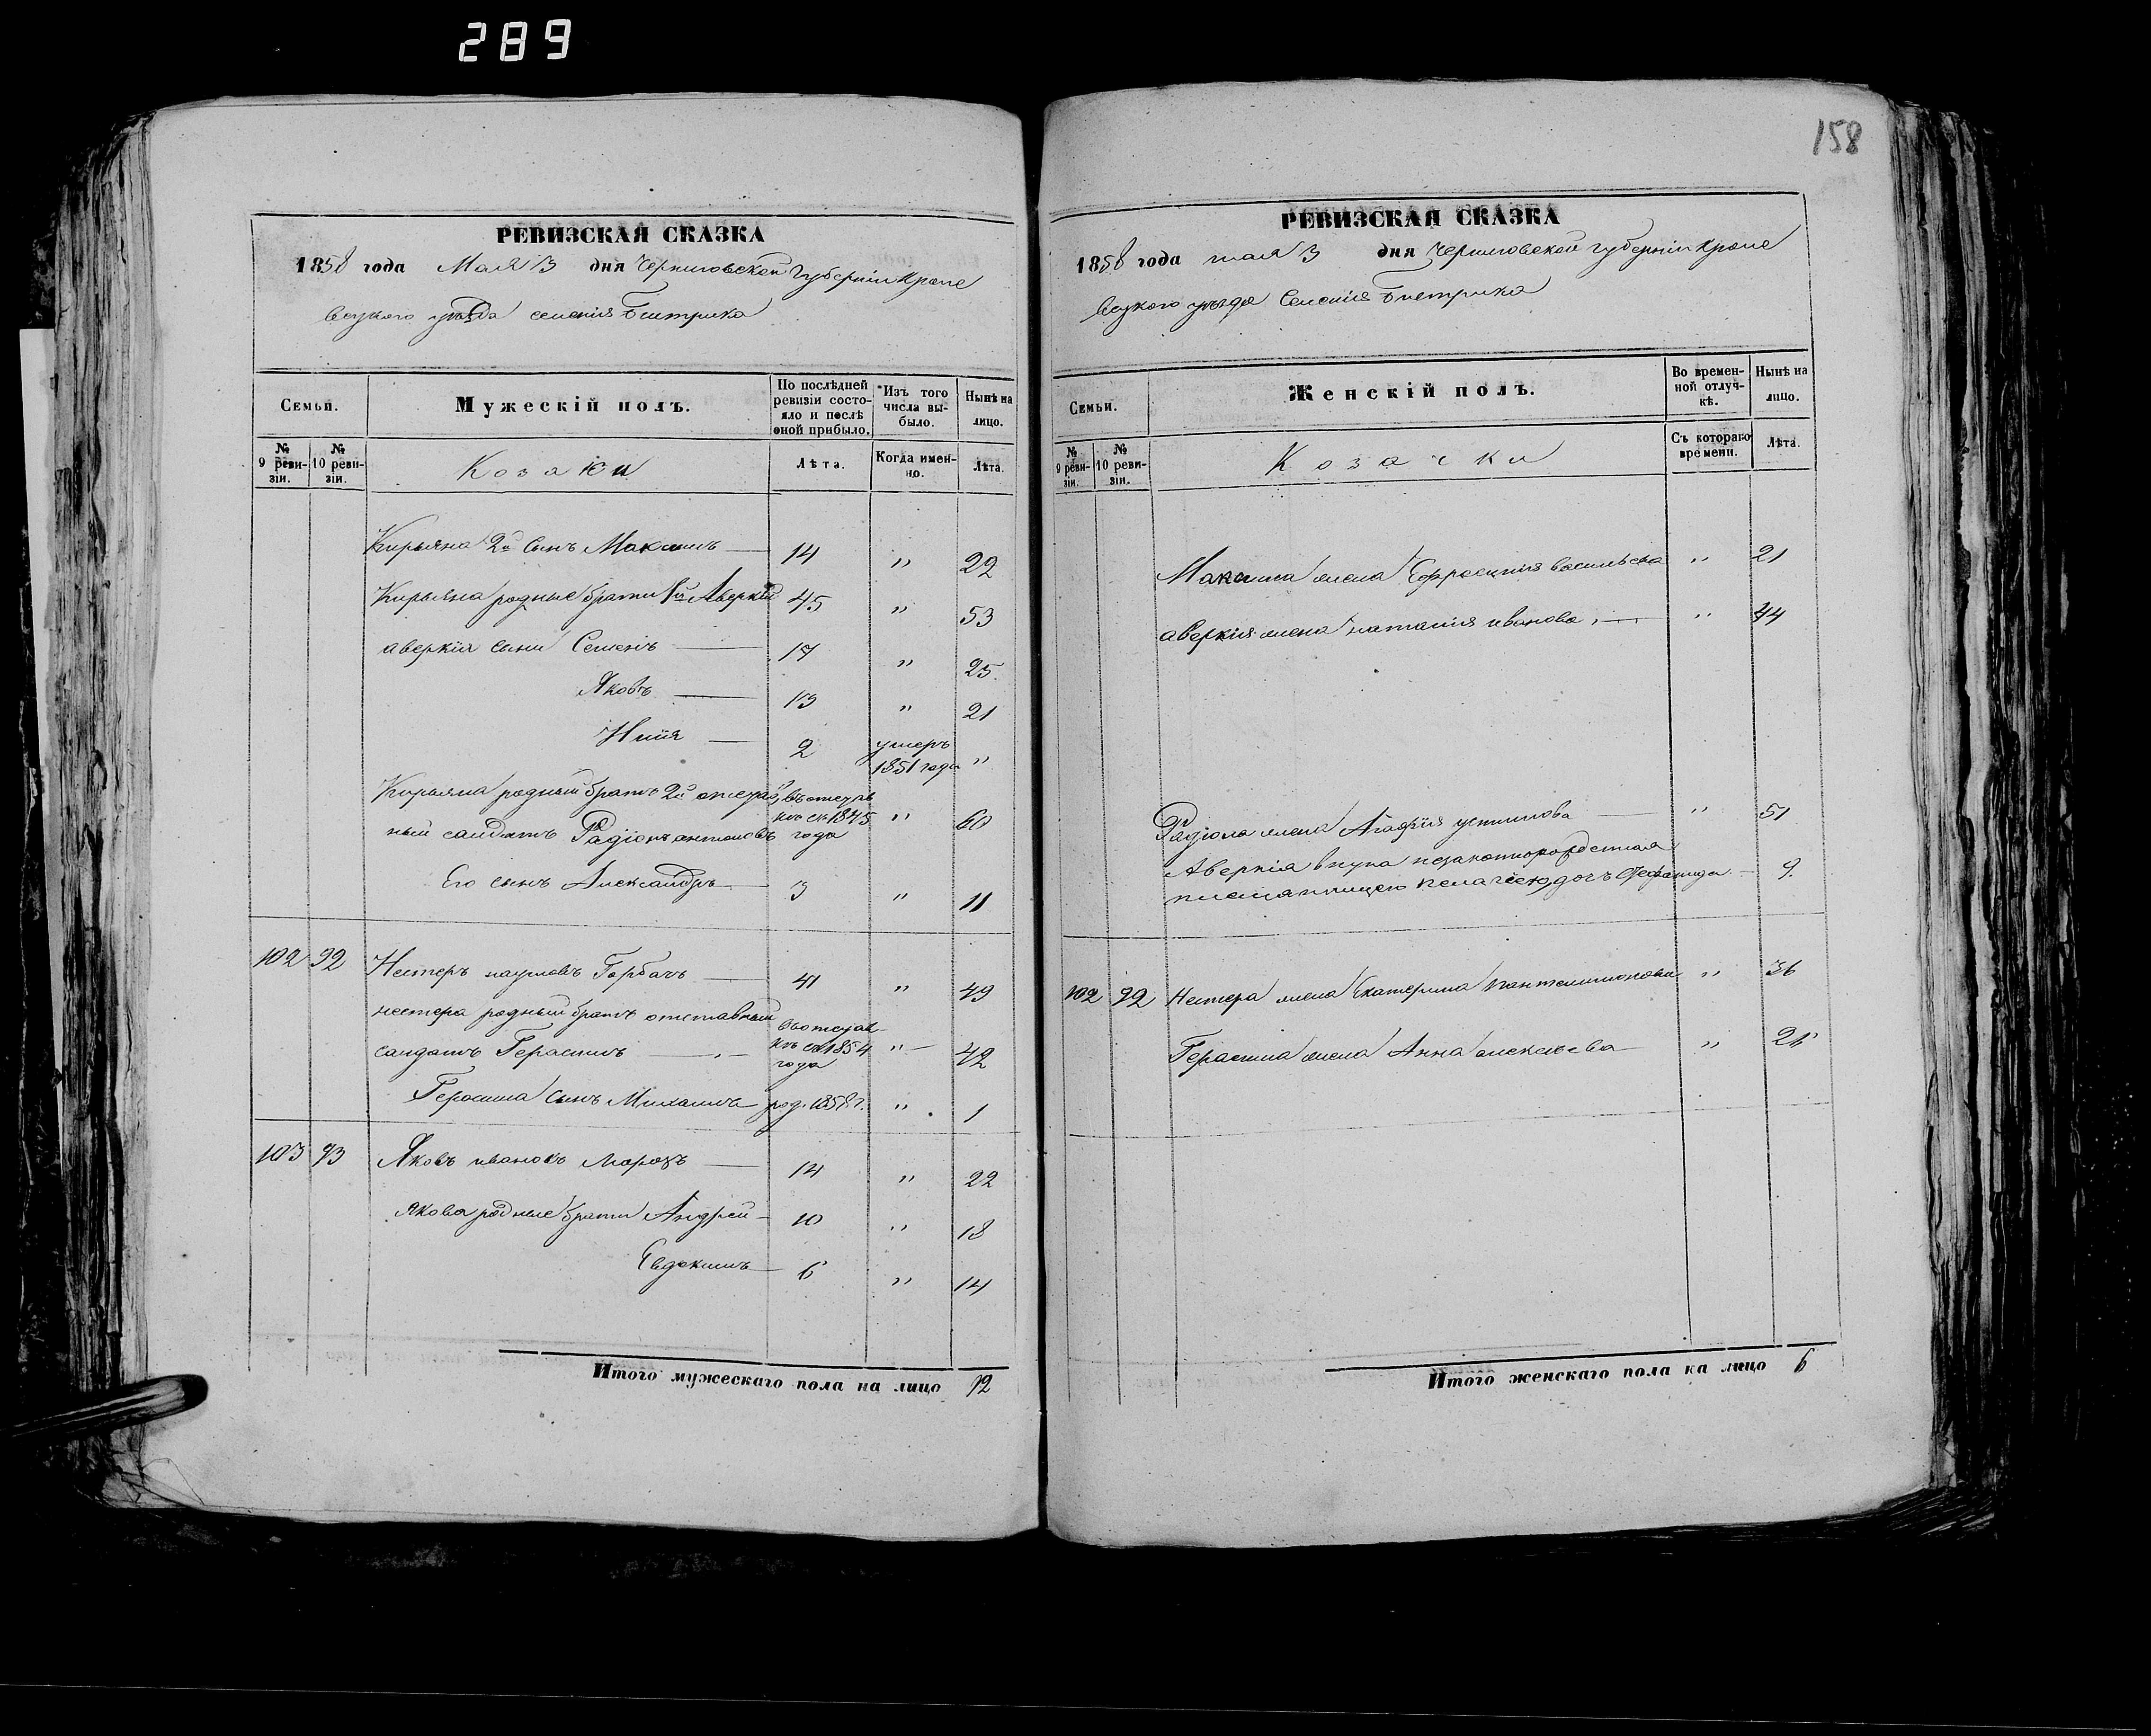 289
158
РЕВИЗСКАЯ СКАЗКА
1858 года Мая 3 дня Черниговской Губерніи Кроле
вецкого уѣзда селенія Быстрика
Семьи.
Мужескій полъ.
По послѣдней ревизіи состояло и послѣ оной прибыло.
Изъ того числа выбыло.
Нынѣ на лицо.
№ 9 ревизіи.
№ 10 ревизіи.
Козаки
Лѣта.
Когда именно.
Лѣта.
Кирьяна 2й сынъ Максимъ 14 " 22
Кирьяна родные братья 1й Аверкій 45 " 53
аверкія сыны Семенъ 17 " 25
Яковъ 13 " 21
Илія 2 умеръ 1851 года "
Кирьяна родный братъ 2й отстав въ отстав
ный салдатъ Радіонъ антоновъ кѣ съ 1845 года " 60
Его сынъ Александръ 3 " 11
102 92 Нестеръ наумовъ Горбачъ 41 " 49
нестера родный братъ отставный
салдатъ Герасимъ въ отстав кѣ съ 1854 года " 42
Герасима сынъ Михаилъ род. 1858 г. " 1
103 93 Яковъ ивановъ Морозъ 14 " 22
Якова родные братья Андрей 10 " 18
Евдокимъ 6 " 14
Итого мужескаго пола на лицо 12
РЕВИЗСКАЯ СКАЗКА
1858 года мая 3 дня Черниговской губерніи Кроле
вецкого уѣзда Селенія Быстрика
Семьи.
Женскій полъ.
Во временной отлучкѣ.
Нынѣ на лицо.
№ 9 ревизіи.
№ 10 ревизіи.
Козачки
Съ котораго времени.
Лѣта.
Максима жена Ефросинія васильева " 21
аверкія жена наталія иванова " 44
Радіона жена Агафія устинова " 51
Аверкія внука незаконнорожденная
племянницею Пелагіею, дочь 9
102 92 Нестера жена Екатерина Пантелимонова " 36
Герасима жена Анна алексѣева " 26
Итого женскаго пола на лицо 6